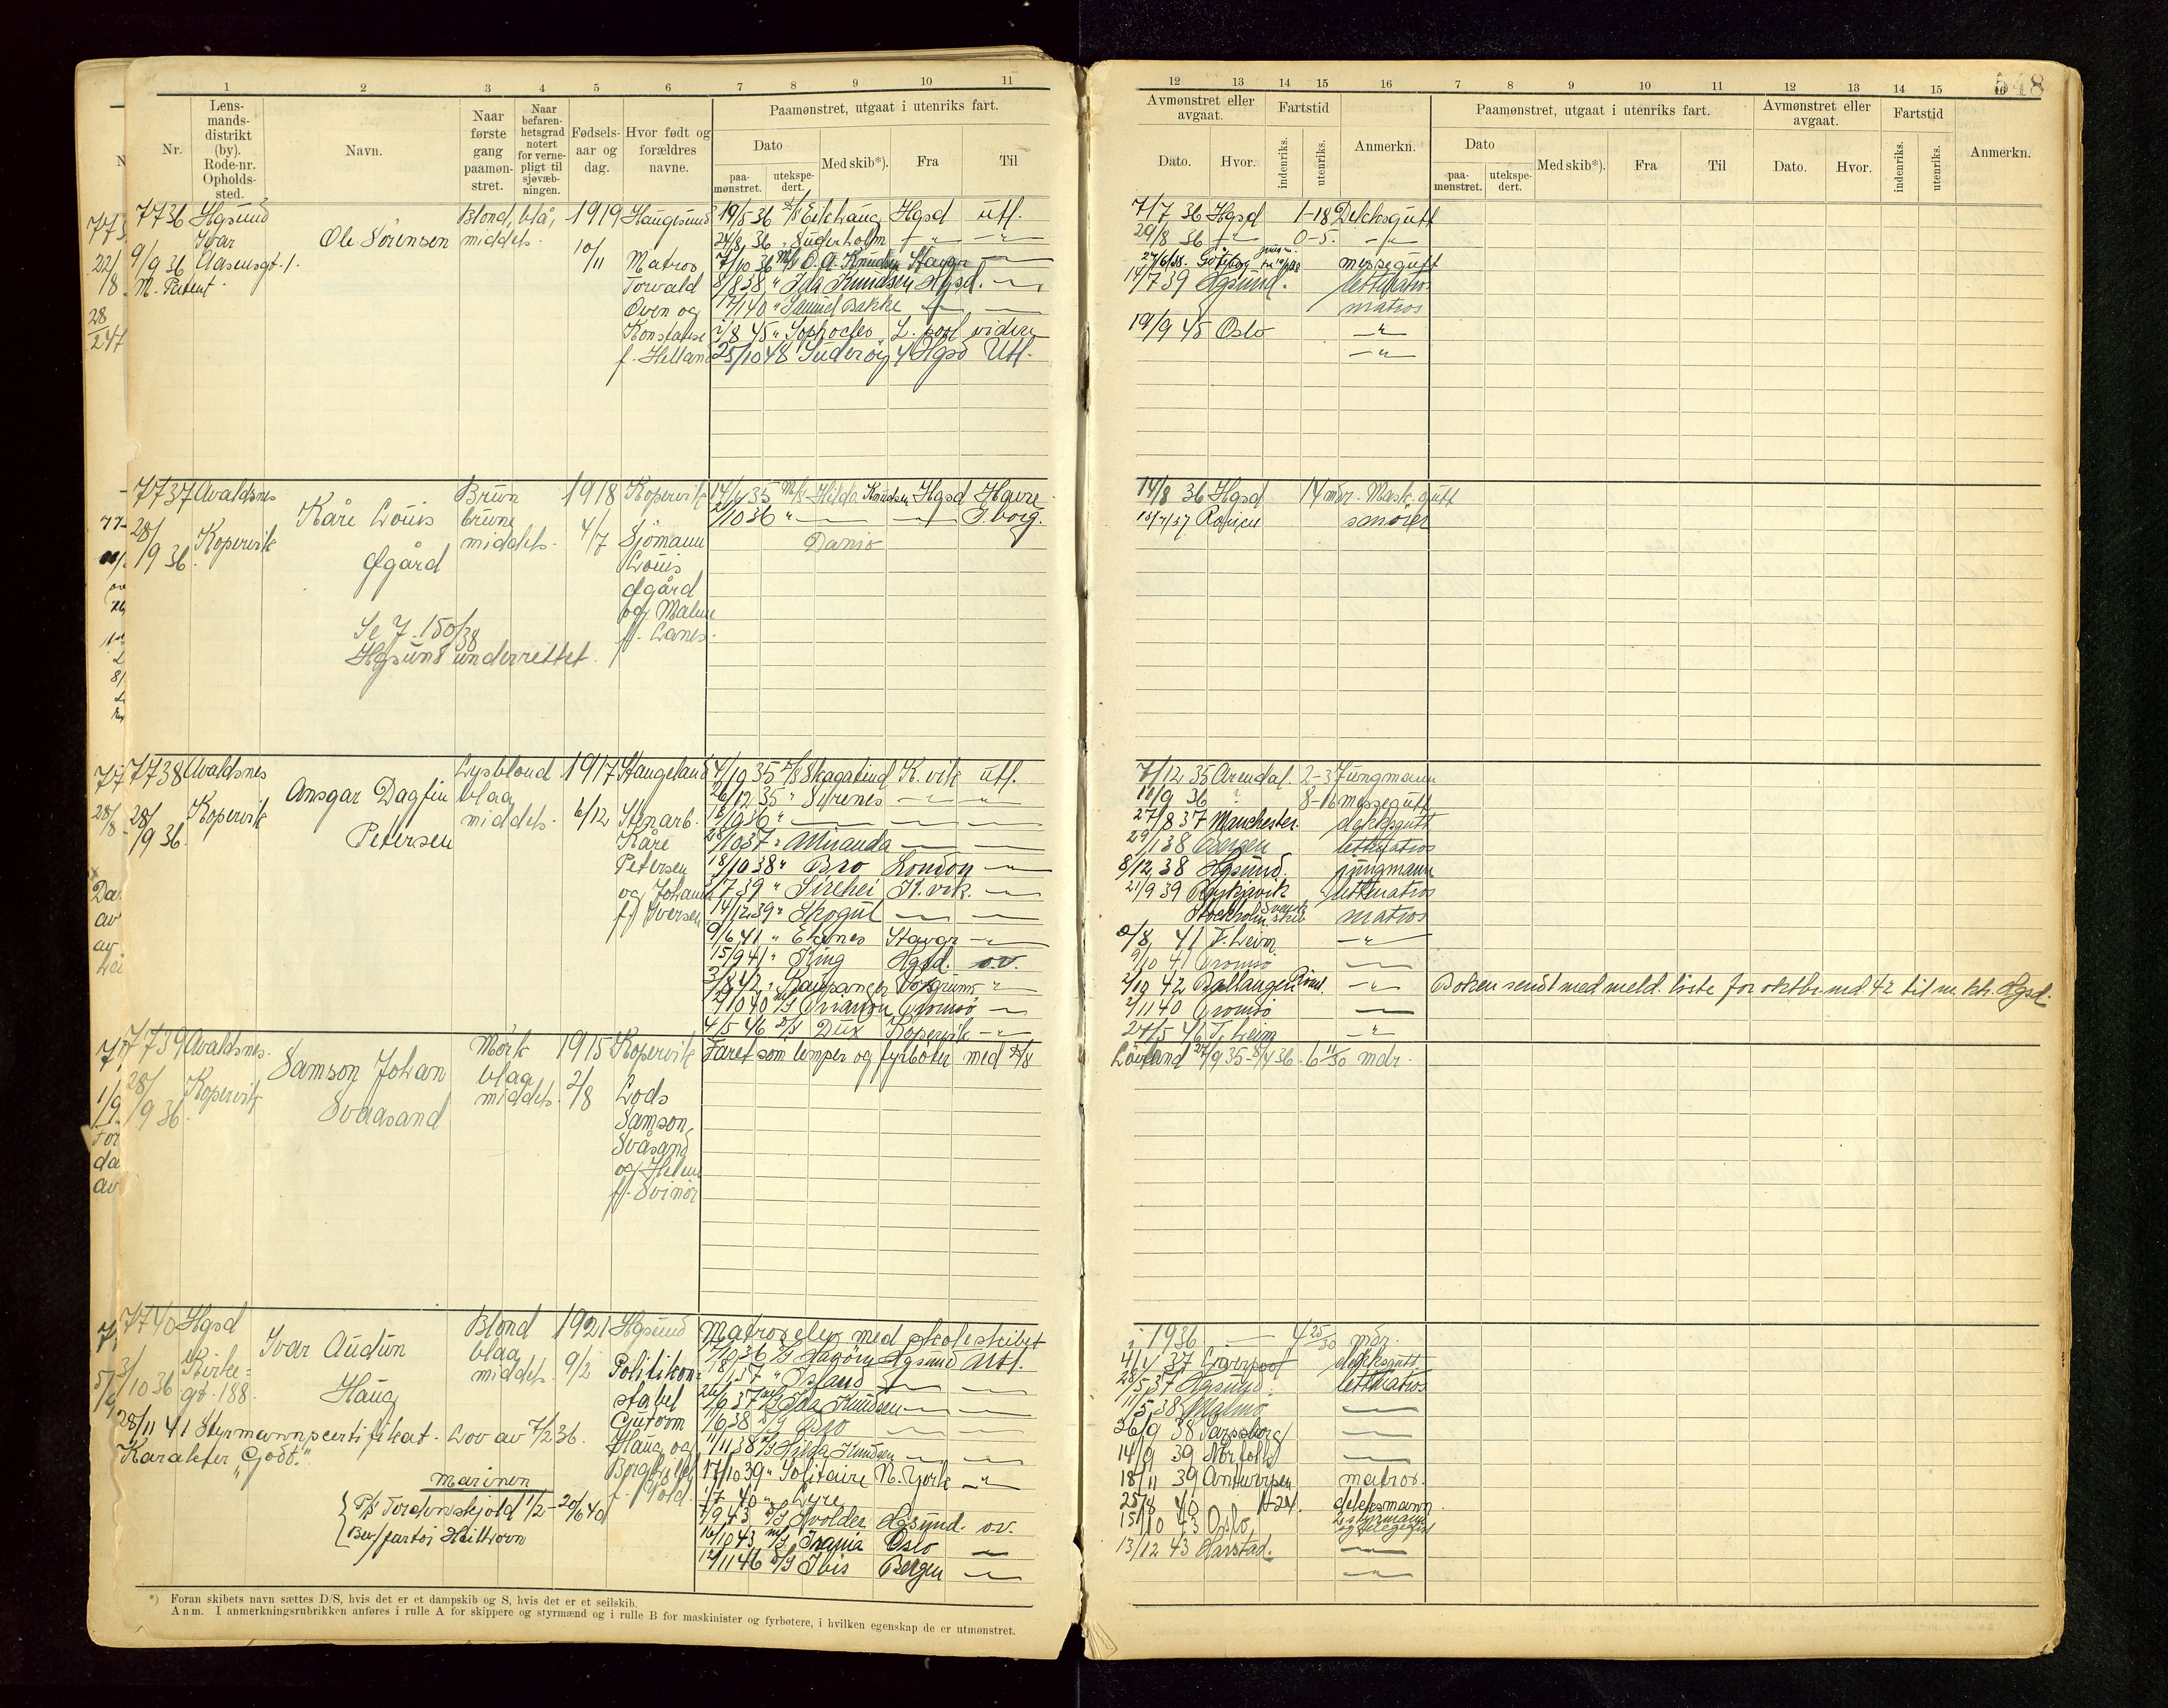 548
1 2 3 4 5 6 7 8 9 10 11
Nr.
Lensmandsdistrikt (by). Rode-nr. Opholdssted.
Navn.
Naar første gang paamønstret.
Naar befarenhetsgrad notert for vernepligt til sjøvæbningen.
Fødselsaar og dag.
Hvor født og forældres navne.
Paamønstret, utgaat i utenriks fart.
Dato
paamønstret. utekspedert.
Med skib*). Fra Til
12 13 14 15 16 7 8 9 10 11 12 13 14 15 16
Avmønstret eller avgaat.
Dato. Hvor.
Fartstid
indenriks. utenriks.
Anmerkn.
Paamønstret, utgaat i utenriks fart.
Dato
paamønstret. utekspedert.
Med skib*). Fra Til
Avmønstret eller avgaat.
Dato. Hvor.
Fartstid
indenriks. utenriks.
Anmerkn.
7736 Hgsund
Ivar Ole Sörensen
9/9 36 Aasensgt. 1.
M. Patent
Blond, blå, middels.
1919 10/11
Haugesund
Matros
Torvald
Øven og
Konstanse
f. Helland
19/5 36 Hgsd utl.
7/7 36 Hgsd 1-18 Dekksgutt
24/8 36 " Suderholm
29/8 36 0-5.
7/10 36 M/S O. A. Knudsen Stavgr
27/6/38. Göteborg messegutt
8/8 38 " Ida Knudsen Hgsd.
14/7 39 Hgsund. lettmatros
17/1 40 " Samuel Bakke
matros
7/8 45 " Sophocles L. pool videre
19/9 45 Oslo
25/10 48 Suderöy 4 Hgsd Utl.
7737 Avaldsnes
28/9 36 Kopervik
Kåre Louis
Øgård
Se J. 150/38
Hgsund underrettet.
Brun brune middels.
1918 4/7
Kopervik
Sjömann
Louis
Øgård
og Malene
f. Lanes.
14/6 35 M/S Hilda Knudsen Hgsd Havre
14/8 36 Hgsd 14 mdr. Mask. gutt
2/10 36 " G.borg.
Danio
Rouen smörer
7738 Avaldsnes
28/9 36. Kopervik
Ansgar Dagfin
Petersen
Lysblond blaa middels.
1917 6/12
Stangeland
Stenarb.
Kåre
Petersen
og Johanna
f. Iversen
4/10 35 D/S Skagatind K.vik utl.
7/12 35 Arendal. 2-3 Jungmann
26/12 35 " Sirenes
11/9 36 ? 8-16 messegutt
16/10 36 "
27/8 37 Manchester. dekksgutt
28/10 37 " Miranda
29/1 38 Bergen lettmatros
18/10 38 " Bro London
8/12 38 Hgsund. jungmann
3/7 39 " Sirehei H.vik.
21/9 39 Reykjavik lettmatros
14/12 39 " Skogul
Stockholm matros
9/6 41 " Eknes Stavgr
2/8 41 T.heim
15/9 41 " King Hgsd. o.v.
9/10 41 Tromsö
3/8 42 " Kaupanger Porsgrunn
2/10 42 Ballangen
Boken sendt med meld. liste for oktbr. md. 42 til m. ktr. Hgsd.
12/10 40 Tromsö
2/11 40 Tromsö
4/5 46 D/S Dux Kopervik
27/5 46 T.heim
7739 Avaldsnes.
28/9 36. Kopervik
Samson Johan
Svaasand
Mörk blaa middels.
1915 2/8
Kopervik
Lods
Samson
Svåsand
og Helene
f. Svinör
Faret som lemper og fyrböter med D/S
Lövland 27/9 35 - 8/4 36. 6 11/30 mdr.
7740 Hgsd
3/10 36 Kirkegt. 188.
Ivar Audun
Haug
Blond blaa middels.
1921 9/2
Hgsund
Politikonstabel
Gutorm
Haug og
Borghild
f. Vold.
28/11 41 Styrmannscertifikat. Lov av 7/2 36.
Karakter „Godt."
Marinen
P/S Tordenskjold 1/2 - 20/6 40
Bev. fartöi Heilhorn
Matroselev med skoleskibet
i 1936. 4 25/30 mdr.
17/10 36 Hgsund Utl.
4/1 37 Liverpool dekksgutt
18/1 37 " Island
28/5 37 Hgsund lettmatros
26/6 37 M/S Ida Knudsen
11/5 38 Malmö
1/6 38 D/S Bro
26/9 38 Sarpsborg
11/11 38 M/S Hilda Knudsen
14/9 39 Norfolk
17/10 39 " Solitaire N. York
18/11 39 Antwerpen matros.
1/7 40 " Lyre
25/8 40 1-24. dekksmann.
7/9 43 D/S Svolder Hgsund. o.v.
15/10 43 Oslo, 2. styrmann og telegrafist
16/10 43 M/S Irania Oslo
13/12 43 Harstad.
12/11 46 D/S Ibis Bergen
*) Foran skibets navn sættes D/S, hvis det er et dampskib og S, hvis det er et seilskib.
Anm. I anmerkningsrubrikken anføres i rulle A for skippere og styrmænd og i rulle B for maskinister og fyrbøtere, i hvilken egenskap de er utmønstret.